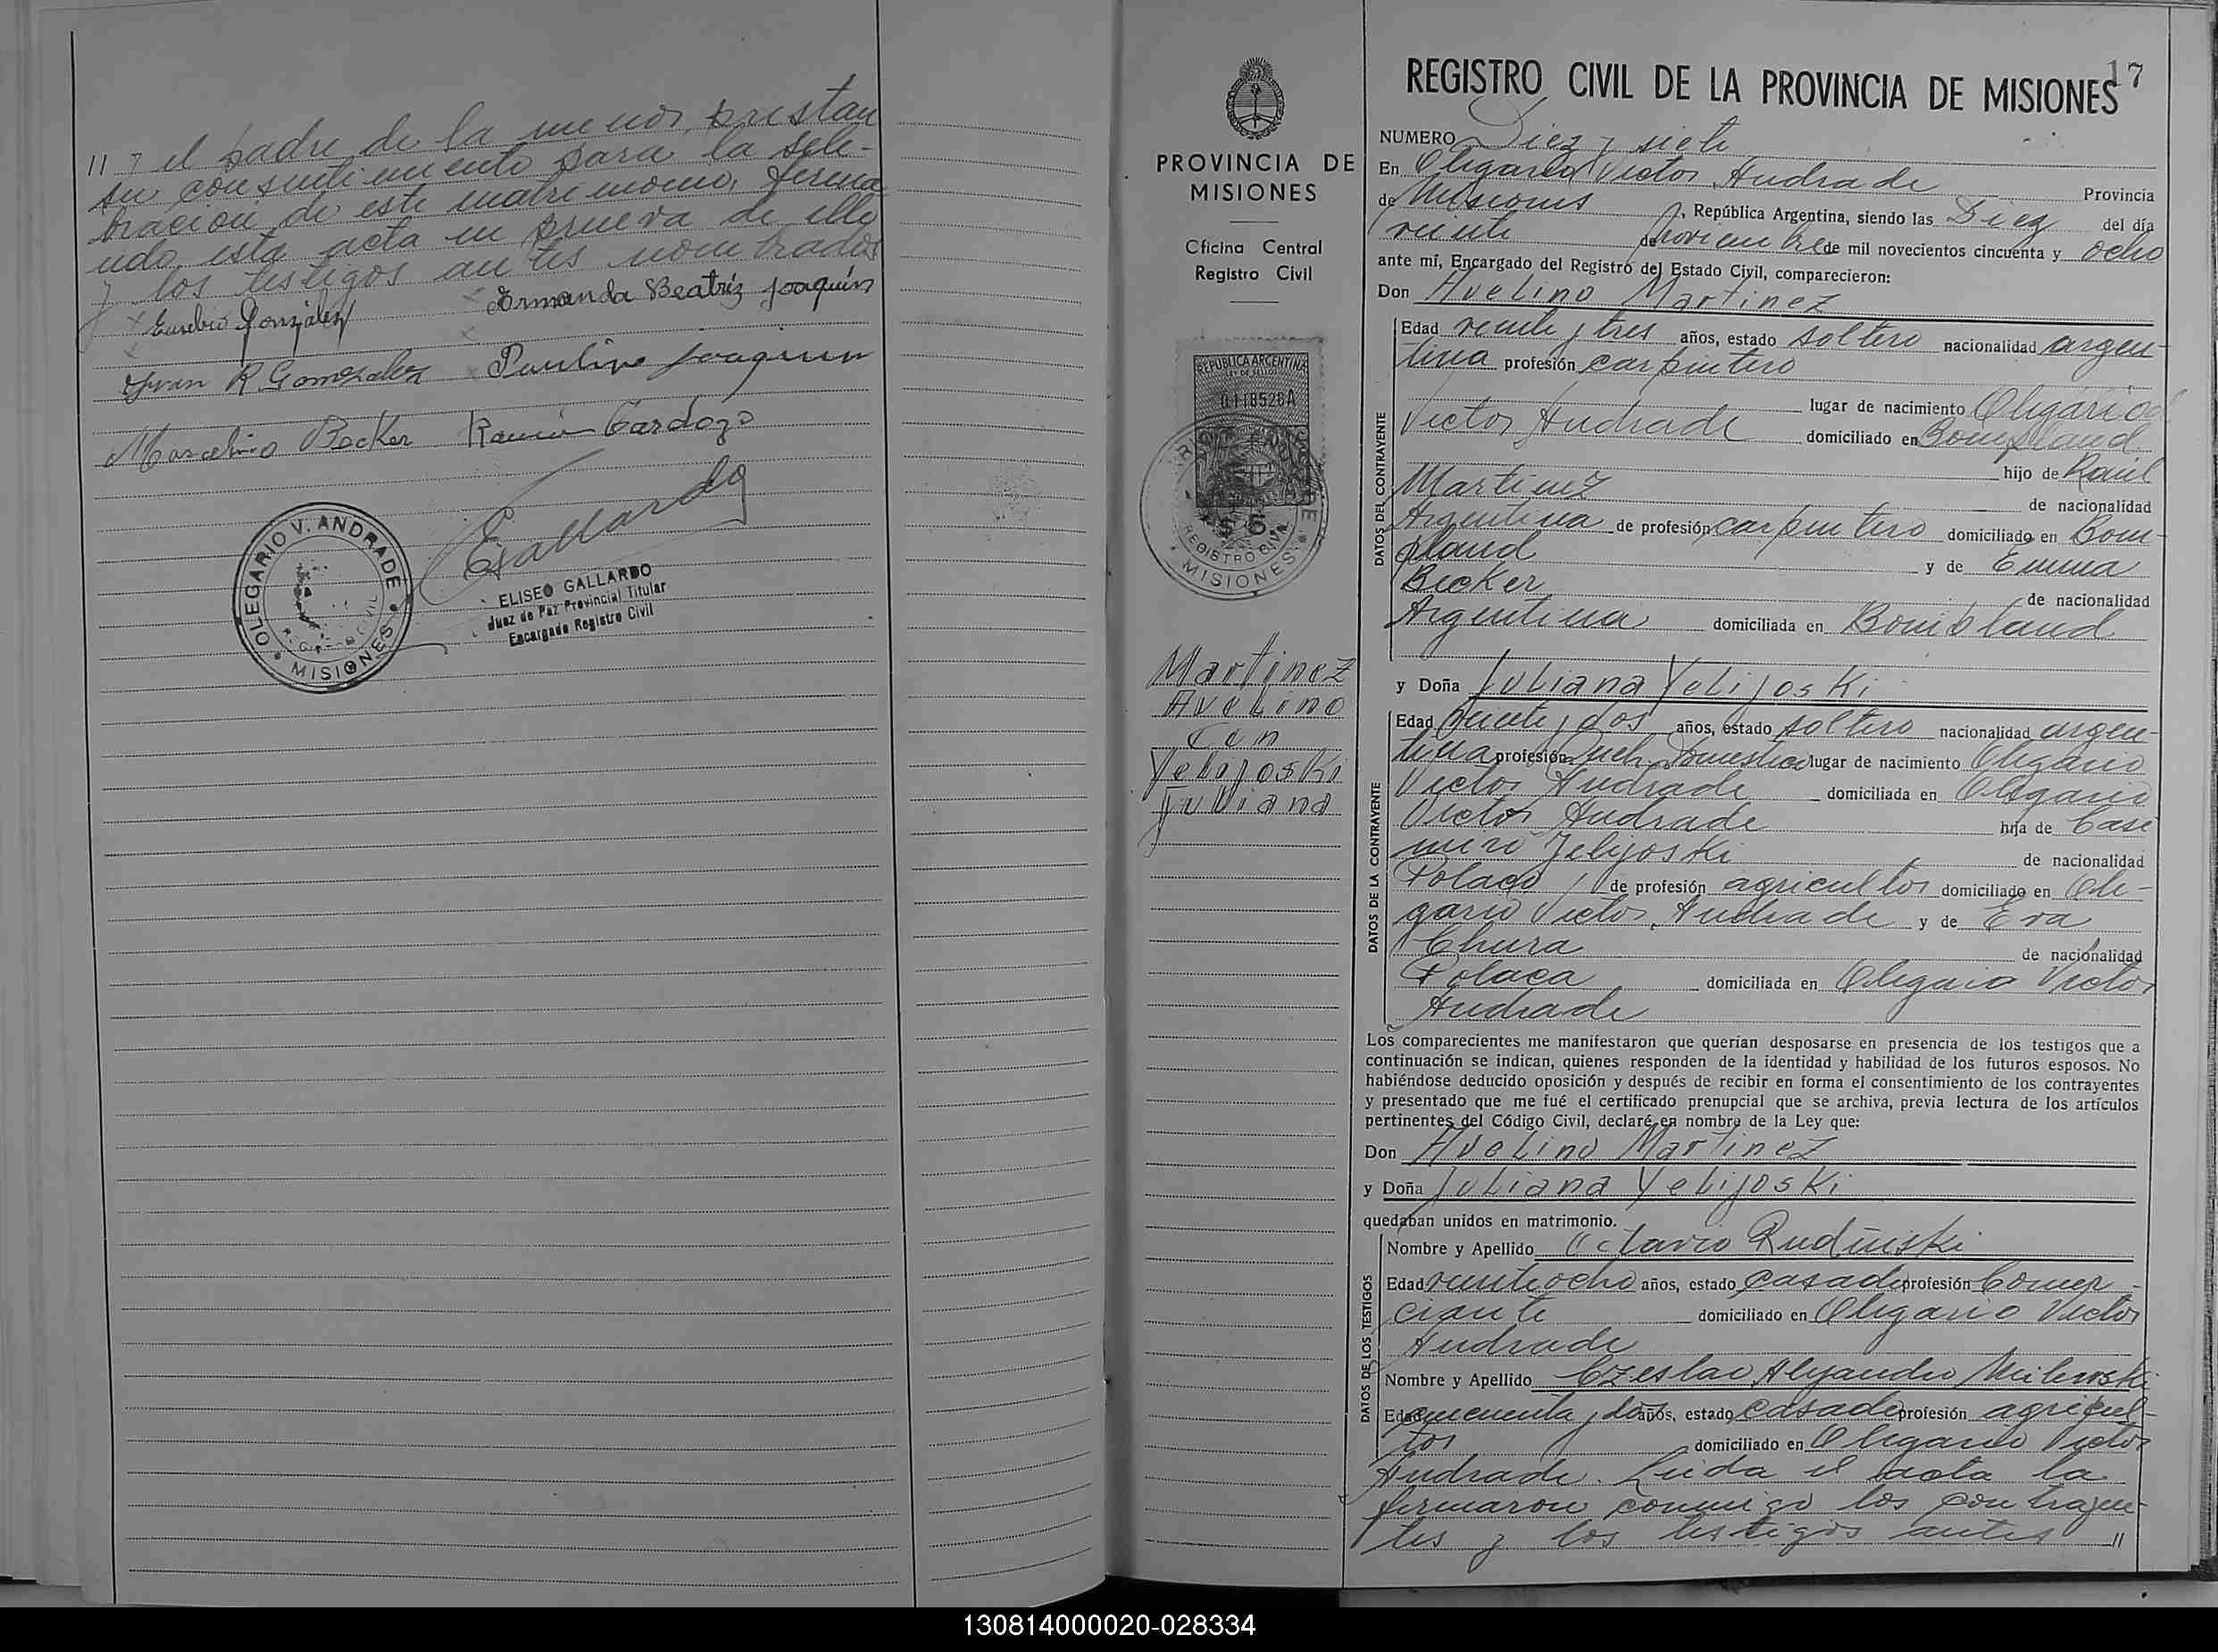 // y el padre de la menor, prestan
su consentimiento para la sele-
bración de este matrimonio, firma
ndo esta acta en prueva de ello
y los testigos antes nombrados
Eusebio González
Ermanda Beatriz Joaquín
Juan R. Gomzalez
Paulino Joaquin
Marcelino Becker
Ramón Cardozo
EGallardo
OLEGARIO V. ANDRADE
MISIONES
ELISEO GALLARDO
Juez de Paz Provincial Titular
Encargado Registro Civil
PROVINCIA DE
MISIONES
Oficina Central
Registro Civil
REPUBLICA ARGENTINA
0.118526A
$ 5
REGISTRO CIVIL
MISIONES
Martinez
Avelino
Con
Yelijoski
Juliana
17
REGISTRO CIVIL DE LA PROVINCIA DE MISIONES
NUMERO Diez y siete
En Oligario Victor Andrade Provincia
de Misiones, República Argentina, siendo las Diez del día
veinte de Noviembre de mil novecientos cincuenta y ocho
ante mí, Encargado del Registro del Estado Civil, comparecieron:
Don Avelino Martinez
DATOS DEL CONTRAYENTE
Edad veinte y tres años, estado soltero nacionalidad argen-
tina profesión carpintero
lugar de nacimiento Oligario
Victor Andrade domiciliado en Bompland
hijo de Raúl
Martinez de nacionalidad
Argentina de profesión carpintero domiciliado en Bom-
pland y de Emma
Becker de nacionalidad
Argentina domiciliada en Bompland
y Doña Juliana Yelijoski
DATOS DE LA CONTRAYENTE
Edad veinte y dos años, estado soltero nacionalidad argen-
tina profesión Queh. Domestico lugar de nacimiento Oligario
Victor Andrade domiciliada en Oligario
Victor Andrade hija de Casi
miro Yelijoski de nacionalidad
Polaco de profesión agricultor domiciliado en Oli-
gario Victor Andrade y de Eva
Chura de nacionalidad
Polaca domiciliada en Oligario Victor
Andrade
Los comparecientes me manifestaron que querían desposarse en presencia de los testigos que a
continuación se indican, quienes responden de la identidad y habilidad de los futuros esposos. No
habiéndose deducido oposición y después de recibir en forma el consentimiento de los contrayentes
y presentado que me fué el certificado prenupcial que se archiva, previa lectura de los artículos
pertinentes del Código Civil, declaré en nombre de la Ley que:
Don Avelino Martinez
y Doña Juliana Yelijoski
quedaban unidos en matrimonio.
DATOS DE LOS TESTIGOS
Nombre y Apellido Octavio Rudinski
Edad veintiocho años, estado casado profesión Comer-
ciante domiciliado en Oligario Victor
Andrade
Nombre y Apellido Czeslao Alejandro Milewski
Edad cincuenta y dos años, estado casado profesión agricul-
tor domiciliado en Oligario Victor
Andrade. Leida el acta la
firmaron conmigo los contrayen-
tes y los testigos antes //
130814000020-028334